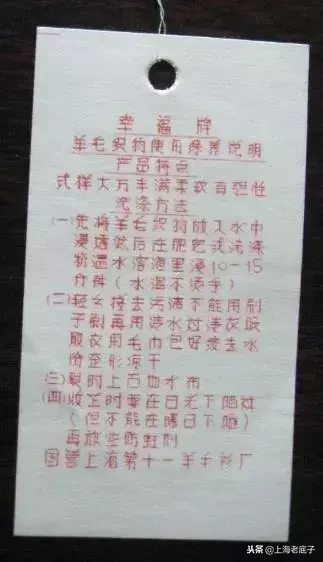 幸福牌
羊毛织物使用保养说明
产品特点
式样大方丰满柔软有弹性
洗涤方法
(一)先将羊毛织物放入水中
浸透然后在肥皂或洗涤
粉温水溶液里浸10-15
分钟(水温不烫手)
(二)轻轻搓去污渍不能用刷
子刷再用清水过清衣服
取衣用毛巾包好拨去水
份整形凉干
(三)熨时上盖加水布
(四)收至时要在日光下晒
(但不能在曝日下晒)
再放些防蛀剂
国营上海第十一羊毛衫厂
头条@上海老底子